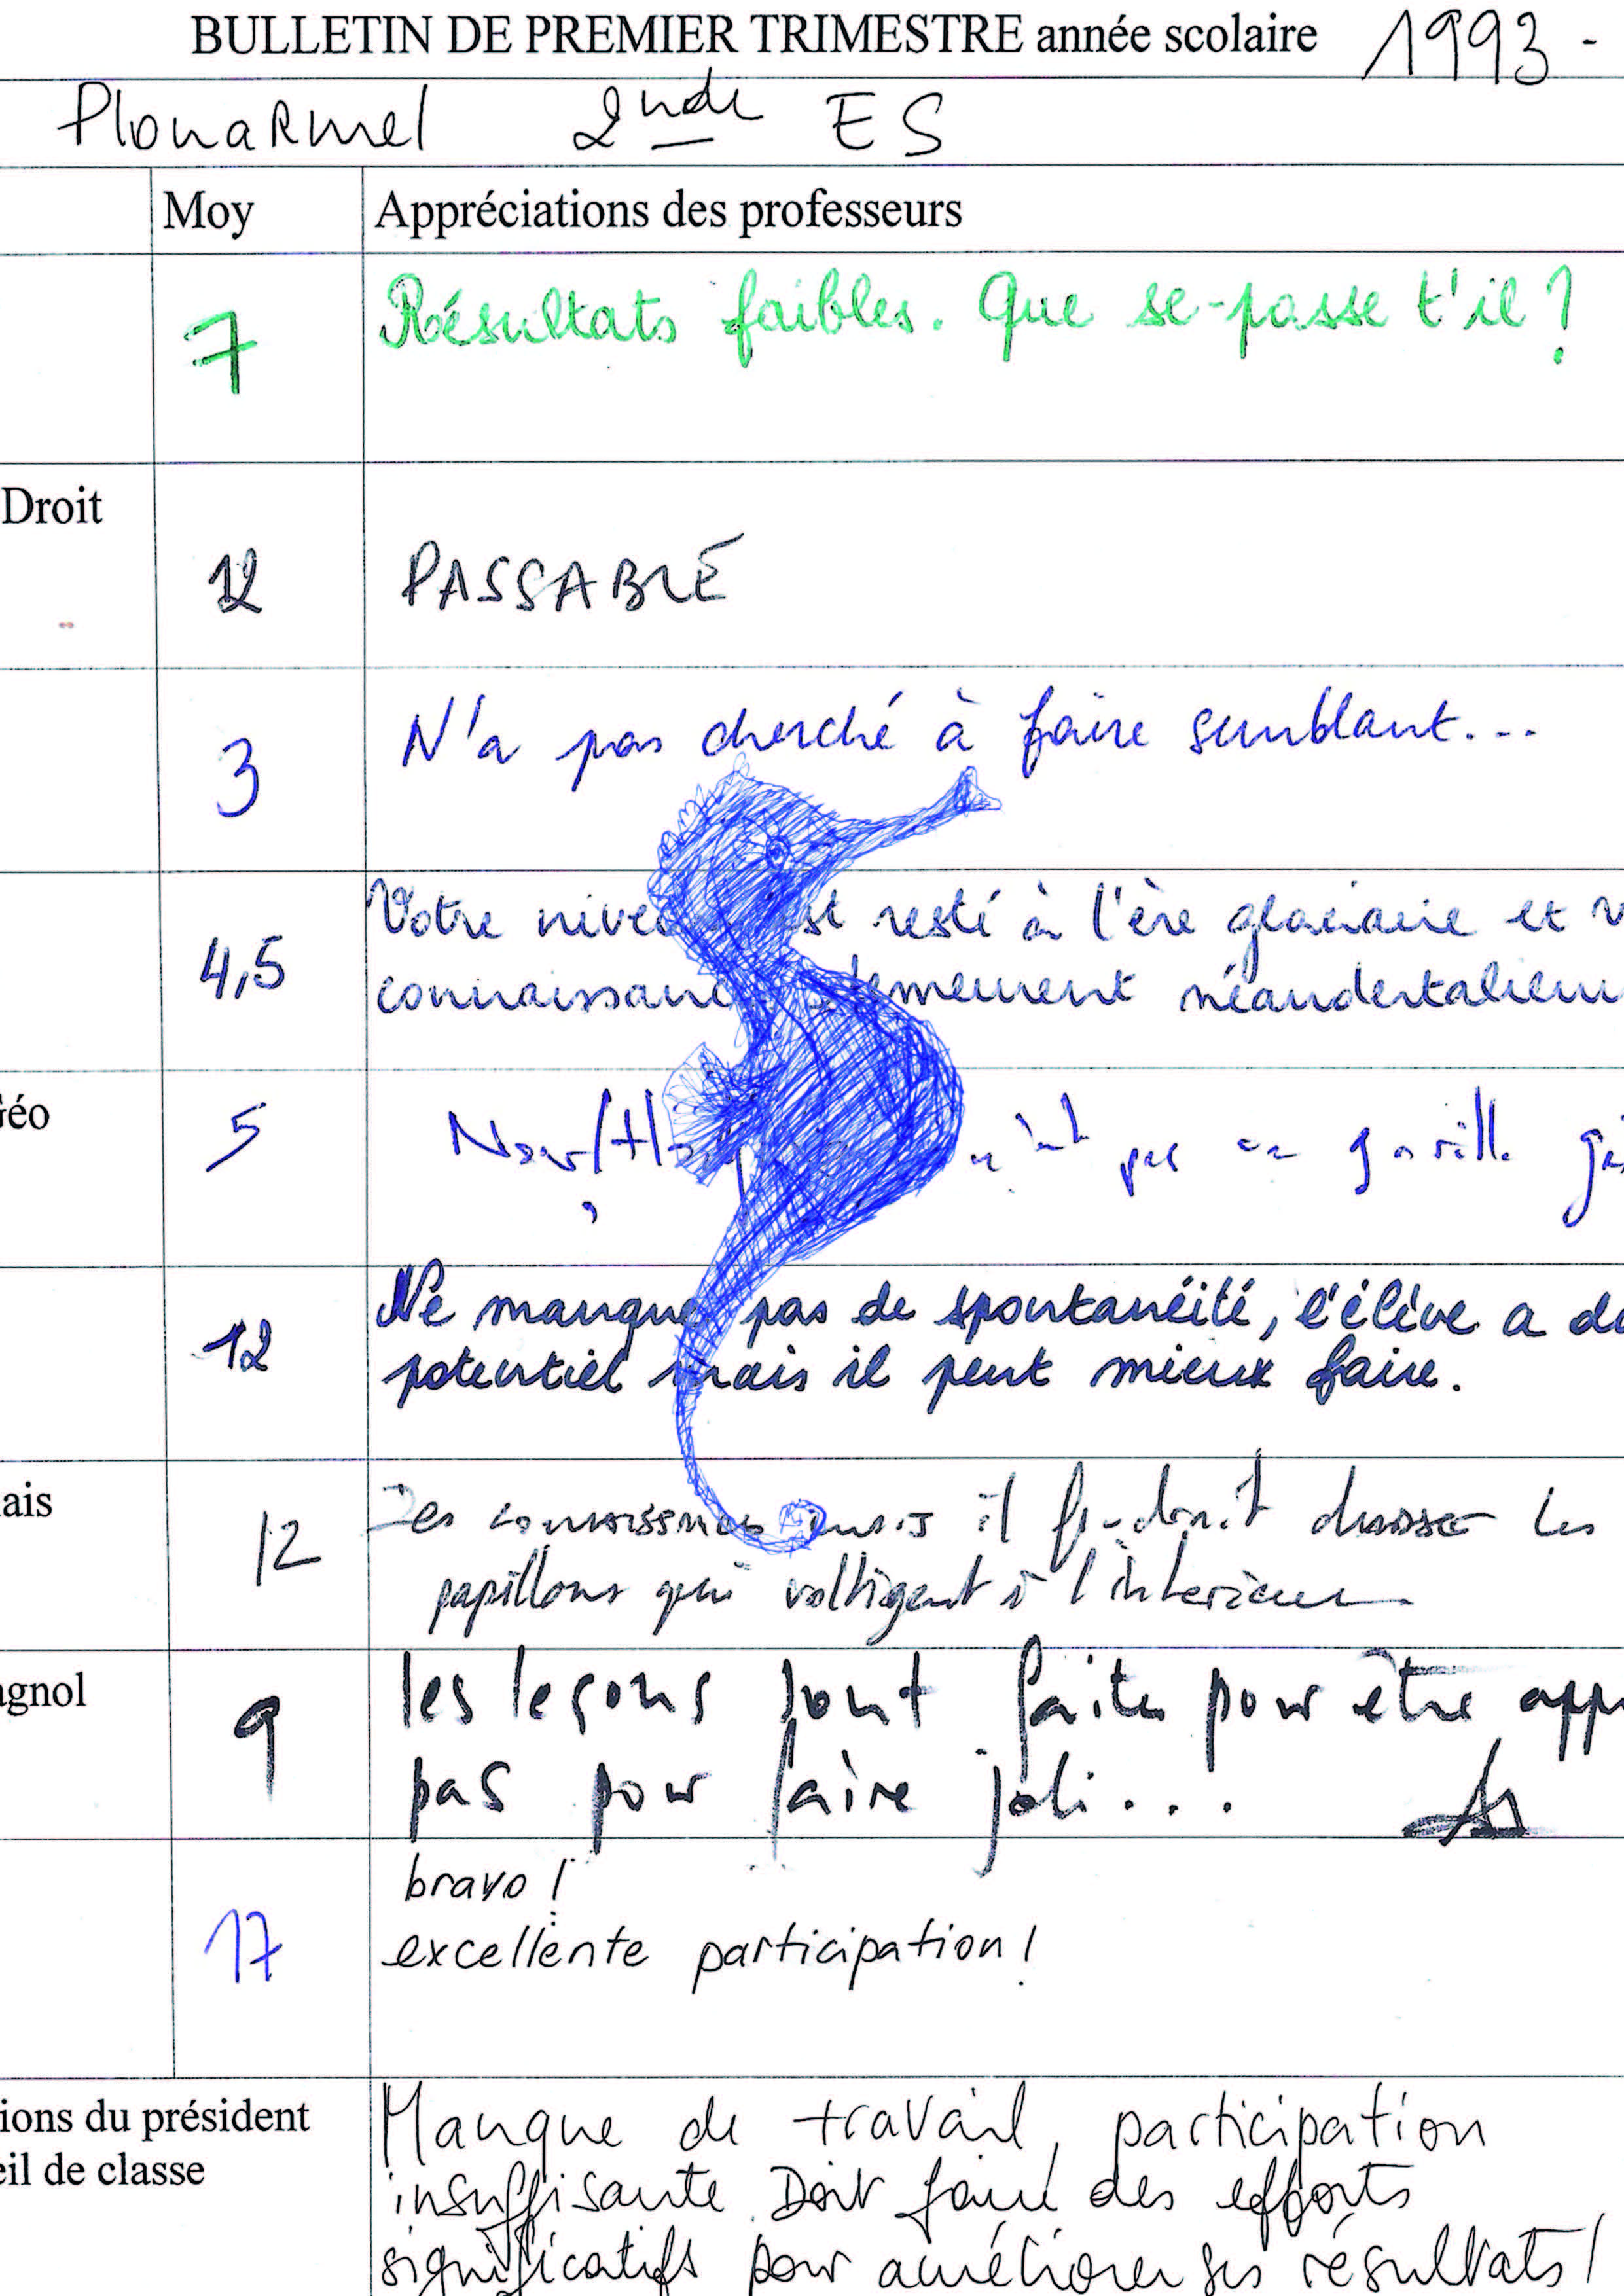 BULLETIN DE PREMIER TRIMESTRE année scolaire 1993 -
PlouaRmel 2nde ES
Moy Appréciations des professeurs
7 Résultats faibles. Que se-passe t'il ?
Droit
12 PASSABLE
3 N'a pas cherché à faire semblant...
Votre resté à l'ère glaciaire et
4,5
néandertalienn
éo 5
pas un gorille
Ne manque pas de spontanéité, l'élève a de
12
potentiel mais il peut mieux faire.
ais 12 Des connaissances mais il faudrait chasser les
papillons qui voltigent à l'intérieur
agnol 9 les leçons sont faites pour être app
pas pour faire joli...
bravo !
17 excellente participation !
ions du président Manque de travail, participation
eil de classe insuffisante. Doit faire des efforts
significatifs pour améliorer ses résultats !